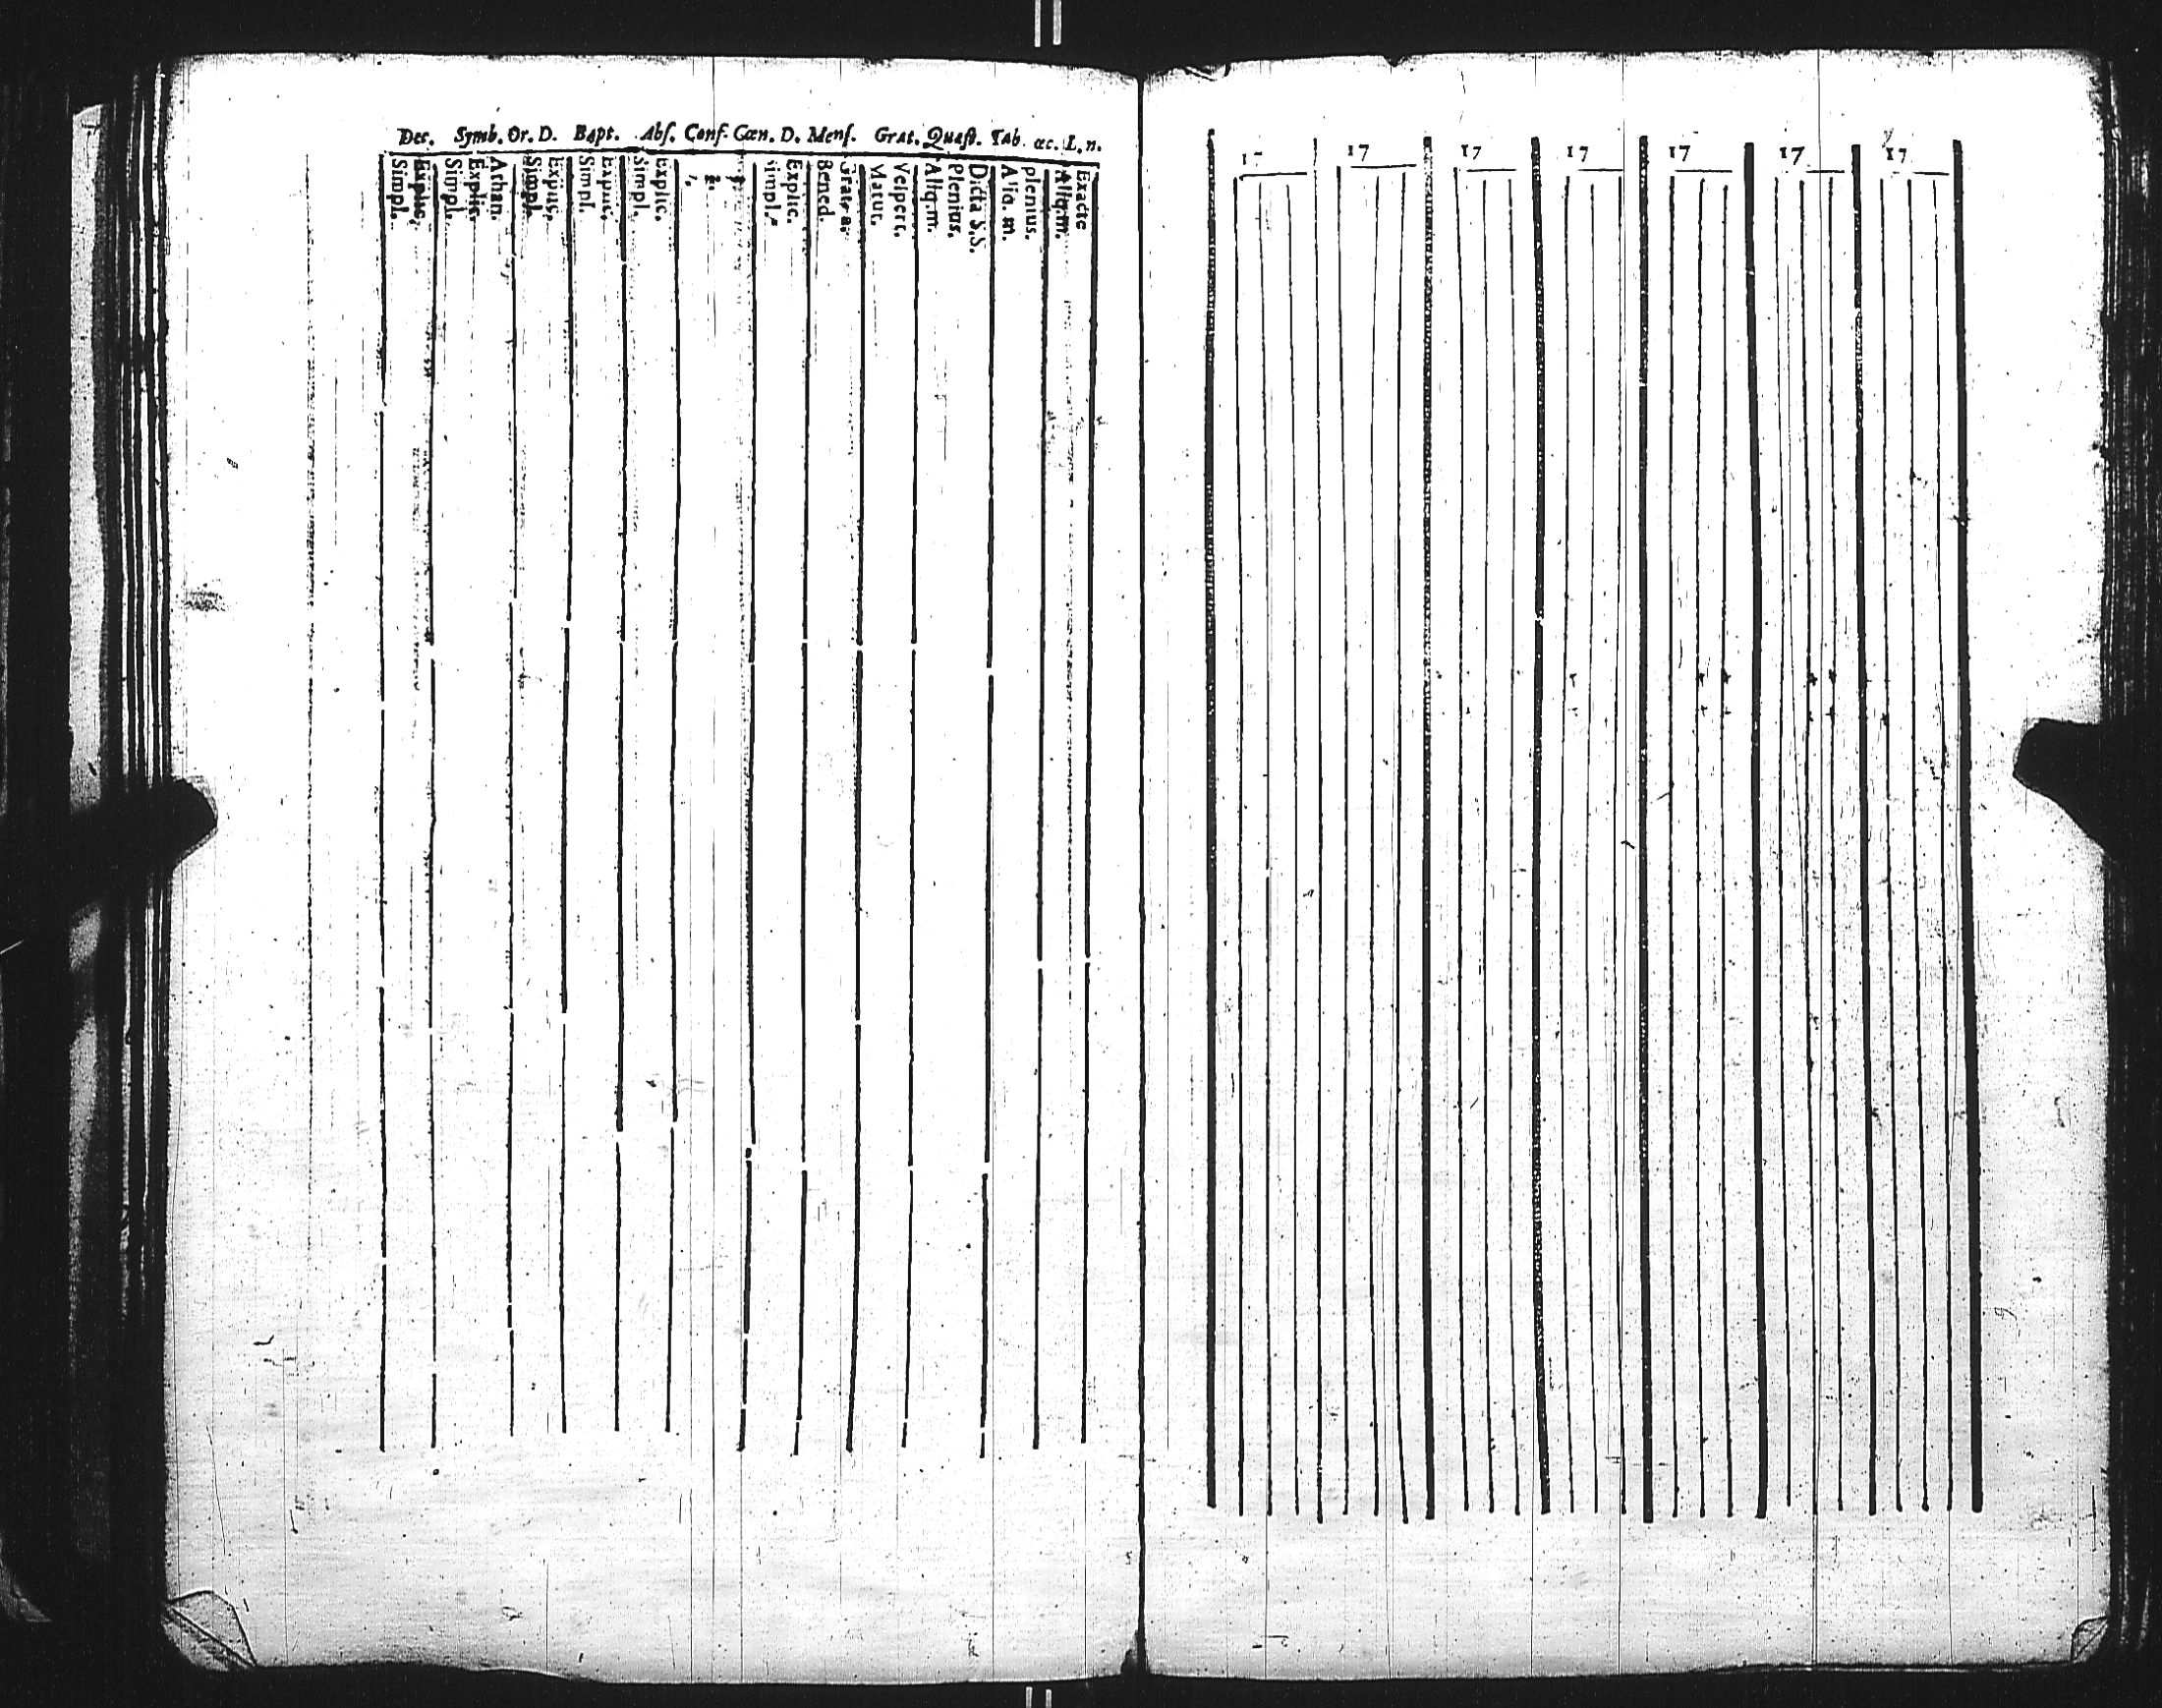 Dec. Symb. Or. D. Bapt. Abſ. Conf. Cœn. D. Menſ. Grat. Quæſt. Tab. œc. L. n.
Simpl.
Explic.
Simpl.
Explic.
Athan.
Simpl.
Expus.
Simpl.
Explic.
Simpl.
Explic.
1.
2.
3.
Simpl.
Explic.
Bened.
Grat. a.
Matut.
Veſpert.
Aliq.m.
Plenius.
Dicta S.S.
Aliq. m.
plenius.
Aliq.m.
Exacte
17 17 17 17 17 17 17